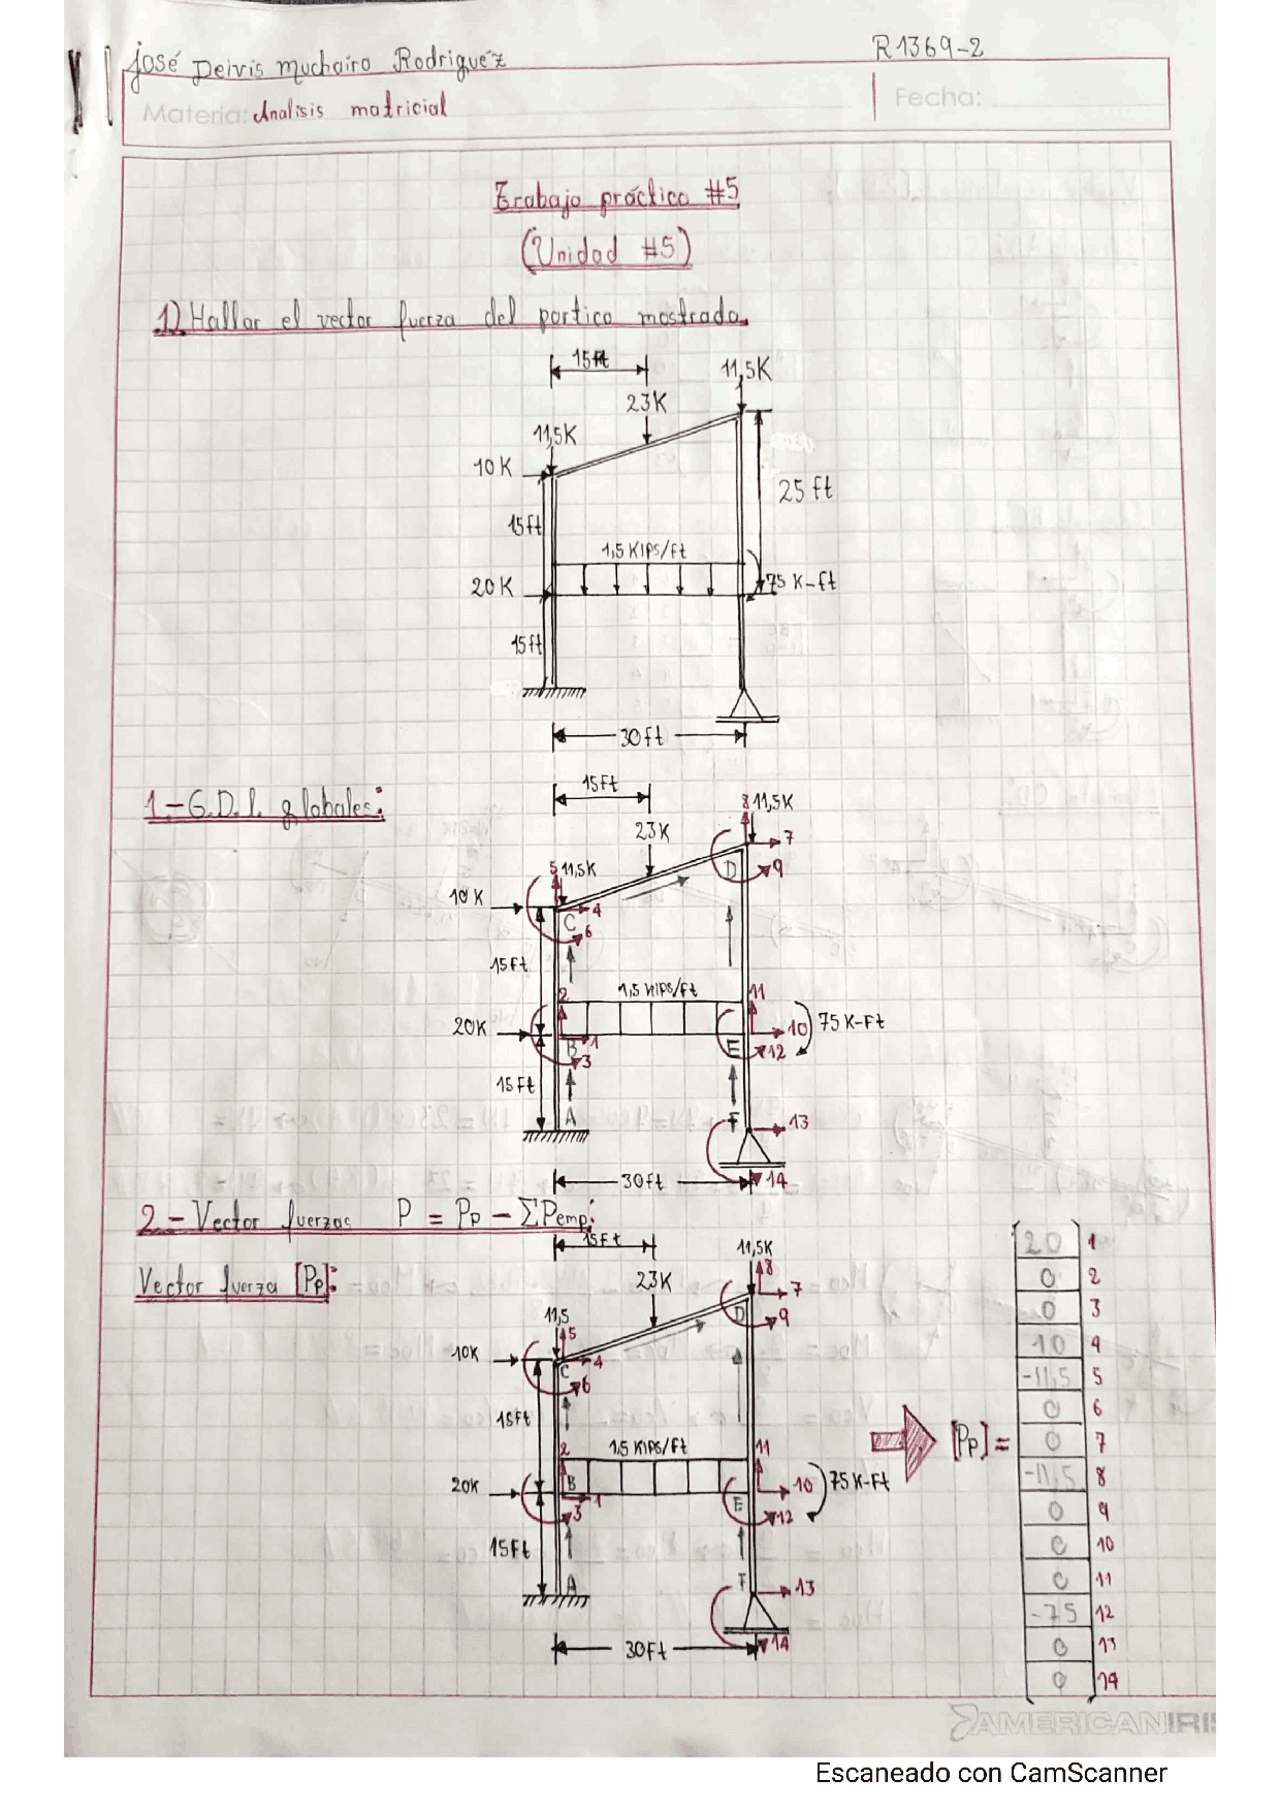 José Deivis Muchairo Rodriguéz
R1369-2
Materia: Analisis matricial
Fecha:
Trabajo práctico #5
(Unidad #5)
1) Hallar el vector fuerza del portico mostrado.
15ft
11,5K
23K
11,5K
10K
25 ft
15ft
1,5 KIPS/ft
20K
75 K-ft
15ft
30ft
1.- G.D.l. globales:
15Ft
8 11,5K
23K
7
D
9
5 11,5K
10 K
4
C
6
15Ft
2
1,5 KIPS/Ft
11
20K
10
75 K-Ft
B
1
3
E
12
15Ft
A
F
13
30ft
14
2.- Vector fuerzas P = Pp - ΣPemp:
15Ft
11,5K
Vector fuerza [Pp]:
23K
8
7
D
9
11,5
5
10K
4
C
6
15Ft
2
1,5 KIPS/Ft
11
20K
B
1
3
10
75 K-Ft
E
12
15Ft
A
F
13
30Ft
14
[Pp] =
20 1
0 2
0 3
10 4
-11,5 5
0 6
0 7
-11,5 8
0 9
0 10
0 11
-75 12
0 13
0 14
AMERICANIRIS
Escaneado con CamScanner